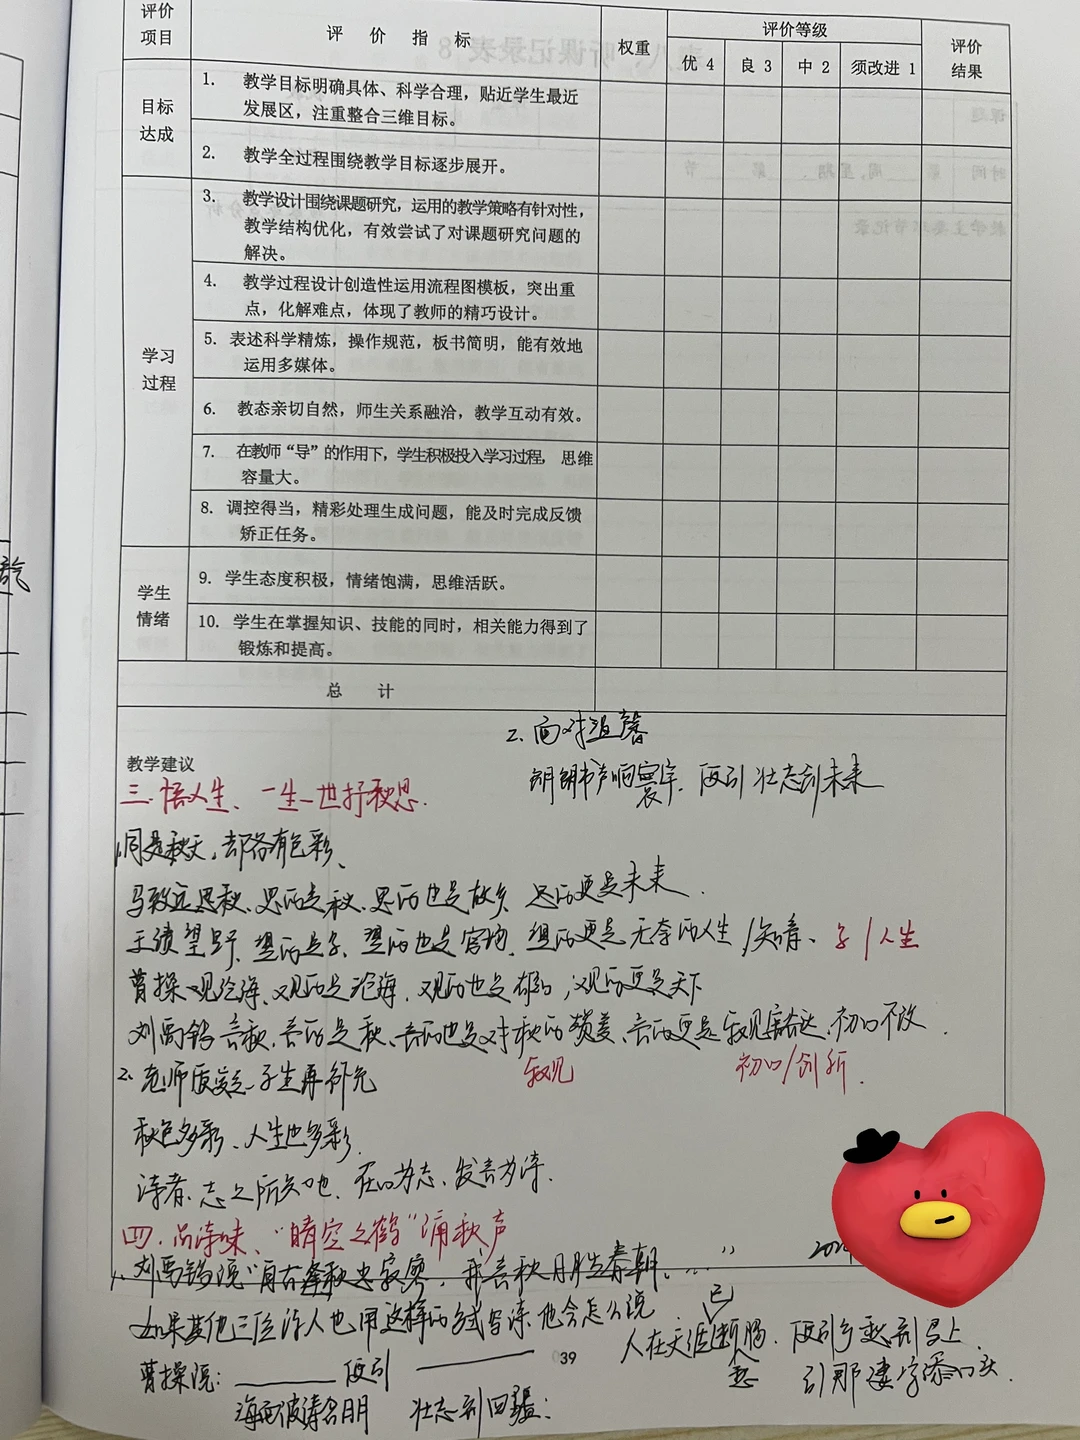 评价项目
评 价 指 标
权重
评价等级
优 4
良 3
中 2
须改进 1
评价结果
目标达成
1. 教学目标明确具体、科学合理，贴近学生最近
发展区，注重整合三维目标。
2. 教学全过程围绕教学目标逐步展开。
学习过程
3. 教学设计围绕课题研究，运用的教学策略有针对性，
教学结构优化，有效尝试了对课题研究问题的
解决。
4. 教学过程设计创造性运用流程图模板，突出重
点，化解难点，体现了教师的精巧设计。
5. 表述科学精炼，操作规范，板书简明，能有效地
运用多媒体。
6. 教态亲切自然，师生关系融洽，教学互动有效。
7. 在教师“导”的作用下，学生积极投入学习过程， 思维
容量大。
8. 调控得当，精彩处理生成问题，能及时完成反馈
矫正任务。
学生情绪
9. 学生态度积极，情绪饱满，思维活跃。
10. 学生在掌握知识、技能的同时，相关能力得到了
锻炼和提高。
总 计
教学建议
2. 面对温馨
朗朗书声响寰宇，便引壮志到未来
三、悟人生、一生一世抒秋思.
1.同是秋天，却各有色彩、
马致远思秋、思的是秋、思的也是故乡 思的更是未来.
王绩望野、望的是、望的也是官场、望的更是无奈的人生
/人生
曹操观沧海、观的是沧海，观的也是，观的更是天下
刘禹锡言秋、言的是秋、言的也是对秋的赞美、言的更是乐观豁达、初心不改.
乐观
初心/创新.
2. 老师质疑 学生再补充
秋色多彩、人生也多彩.
诗者、志之所之也、在心为志、发言为诗.
四、品诗味、“晴空之鹤”诵秋声
1. 刘禹锡说“自古逢秋悲寂寥，我言秋日胜春朝、…”
如果其他三位诗人也用这样的方式写诗，他会怎么说
曹操说: ______ 便引 ______
海 波涛 壮志到
人在天涯已断肠，便引乡愁到马上
39